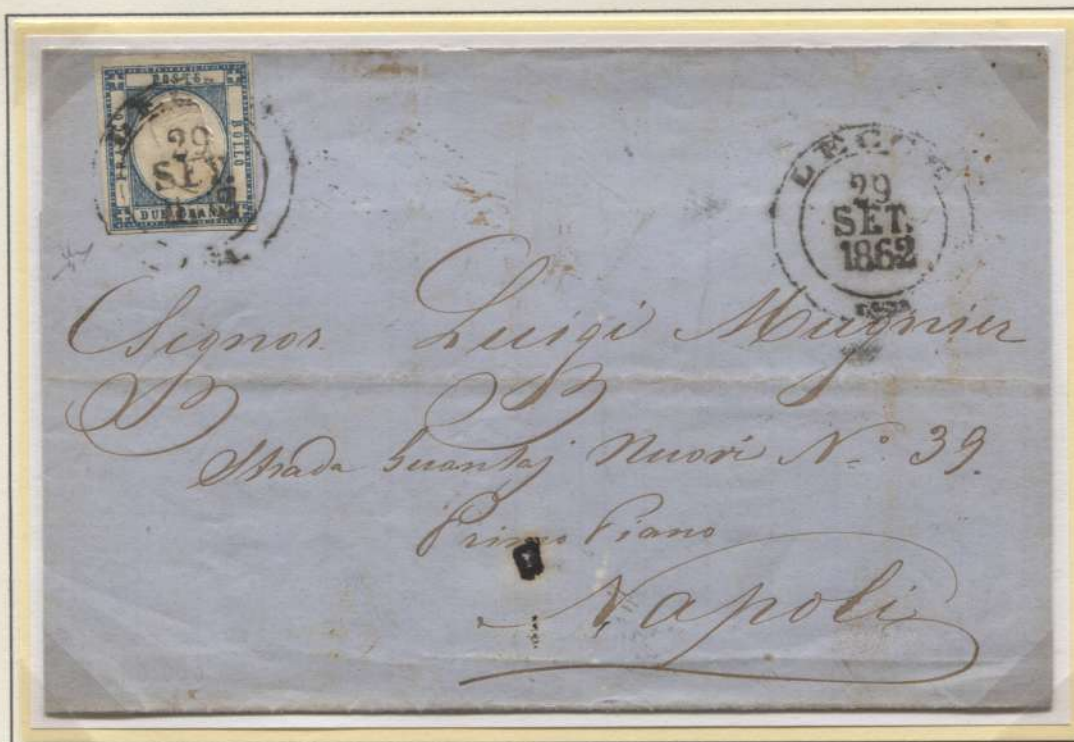 POSTE
FRANCO
BOLLO
DUE GRANA
29
SET
LECCE
29
SET.
1862
Signor Luigi Mugnier
Strada Guantaj Nuovi N.º 39.
Primo Piano
Napoli